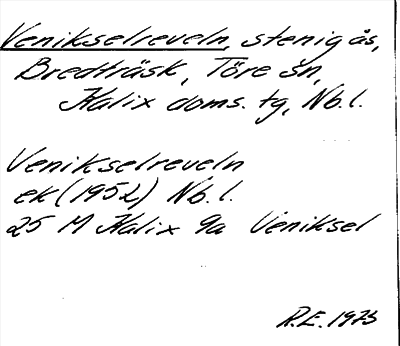 Venikselreveln, stenig ås,
Bredträsk, Töre sn,
Kalix doms. tg, Nb.l.
Venikselreveln
ek (1952) Nb.l.
25 M Kalix 9a Veniksel
R.E. 1973